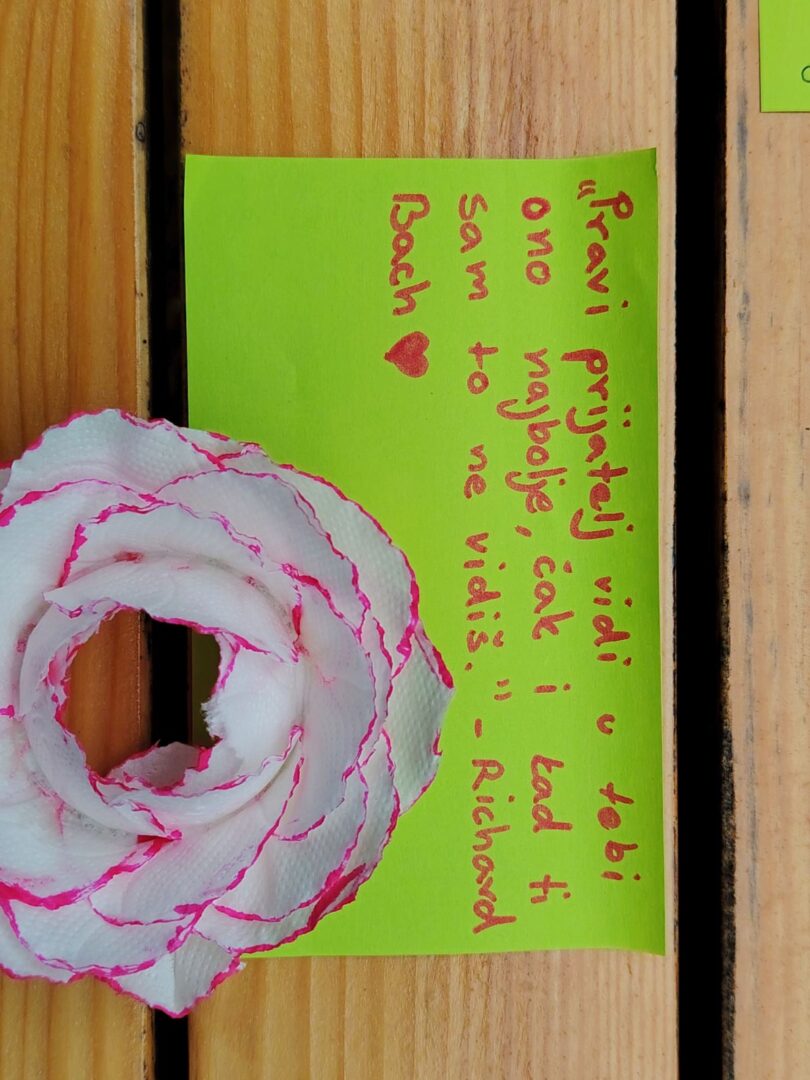 „Pravi prijatelj vidi u tobi
ono najbolje, čak i kad ti
sam to ne vidiš." - Richard
Bach ♥